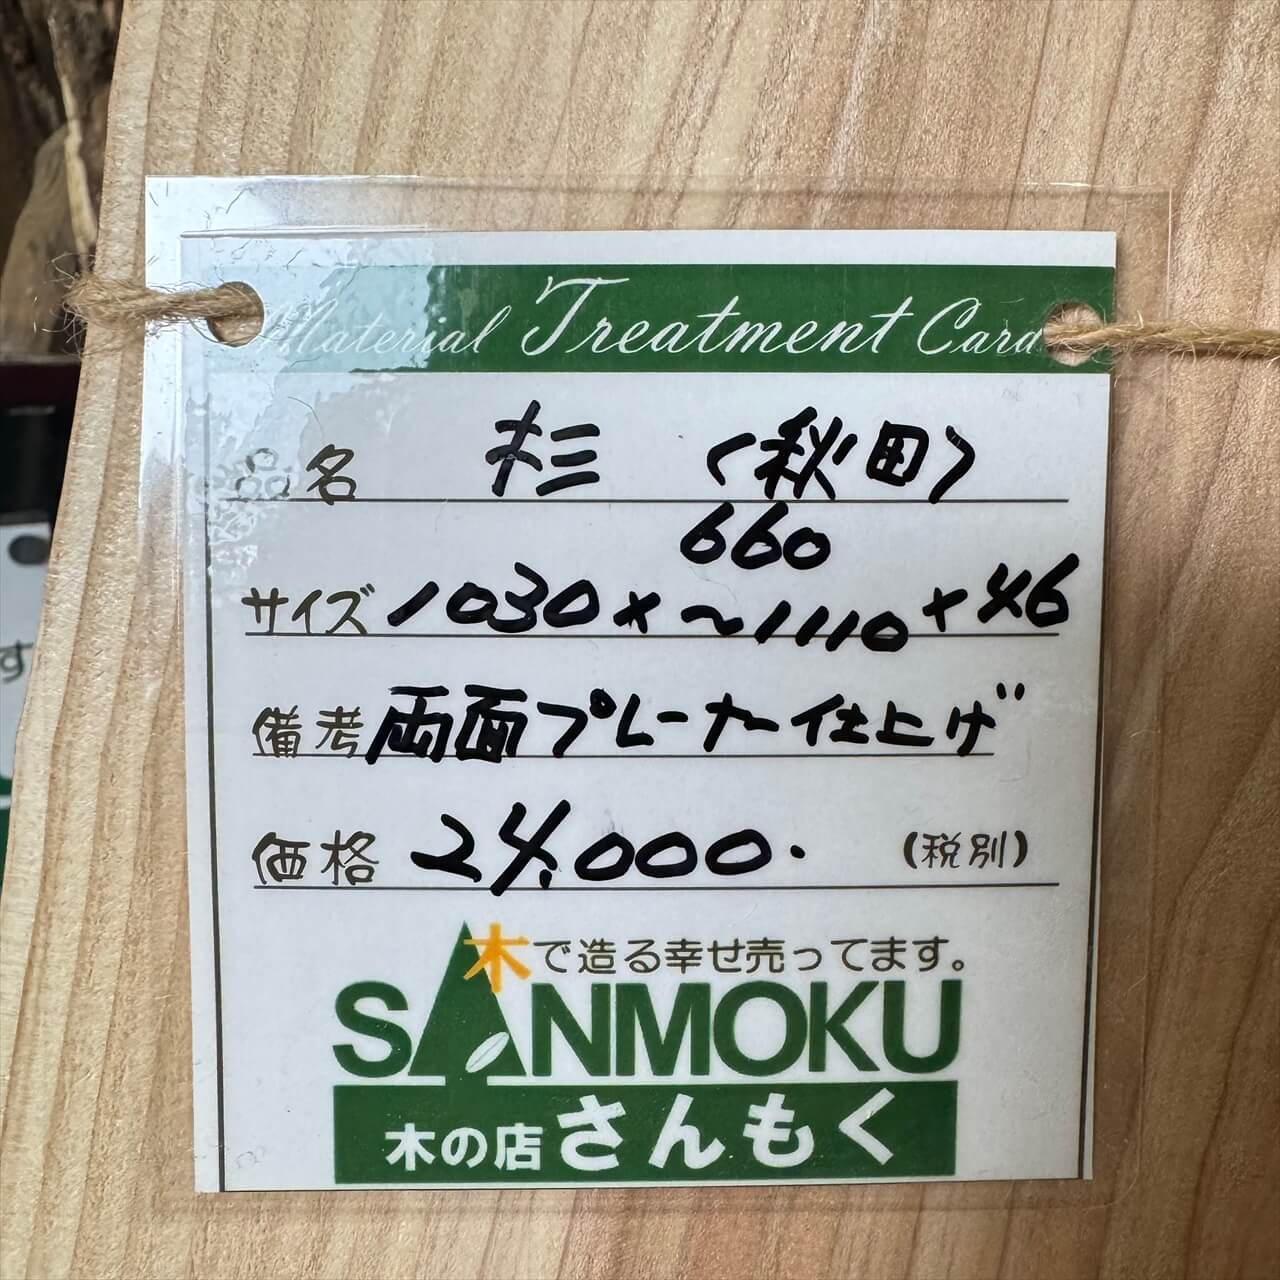 Material Treatment Card
品名 杉 (秋田)
660
サイズ 1030×~1110×46
備考 両面プレーナー仕上げ
価格 24,000. (税別)
木で造る幸せ売ってます。
SANMOKU
木の店さんもく
す